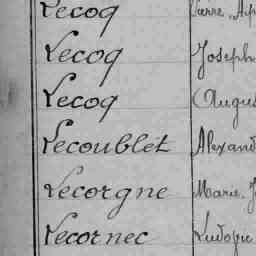 Lecoq Pierre, Alp
Lecoq Joseph
Lecoq Augus
Lecoublet Alexand
Lecorgne Marie, J
Lecornec Ludovic